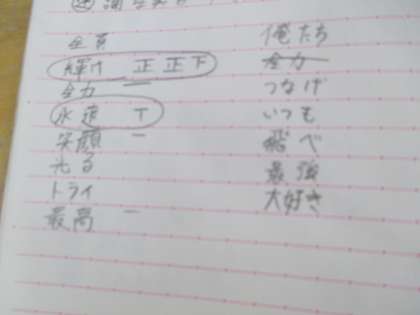 全員
輝け 正 正 下
全力 一
永遠 T
笑顔 一
光る
トライ
最高 一
俺たち
全力
つなげ
いつも
飛べ
最強
大好き